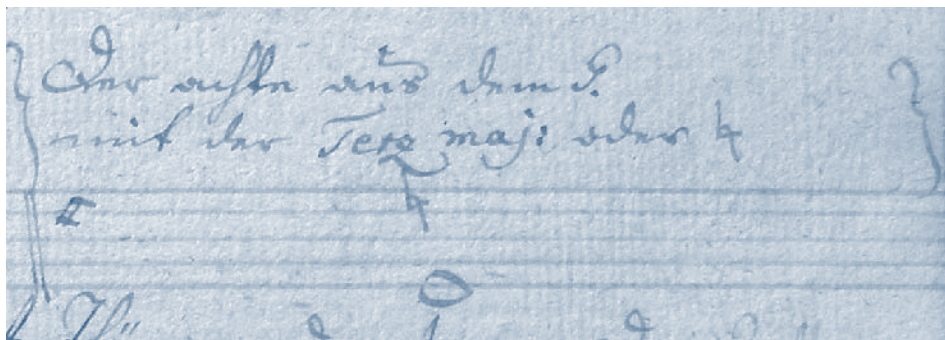 Der achte aus dem F.
mit der Terz maj: oder ♮
♮